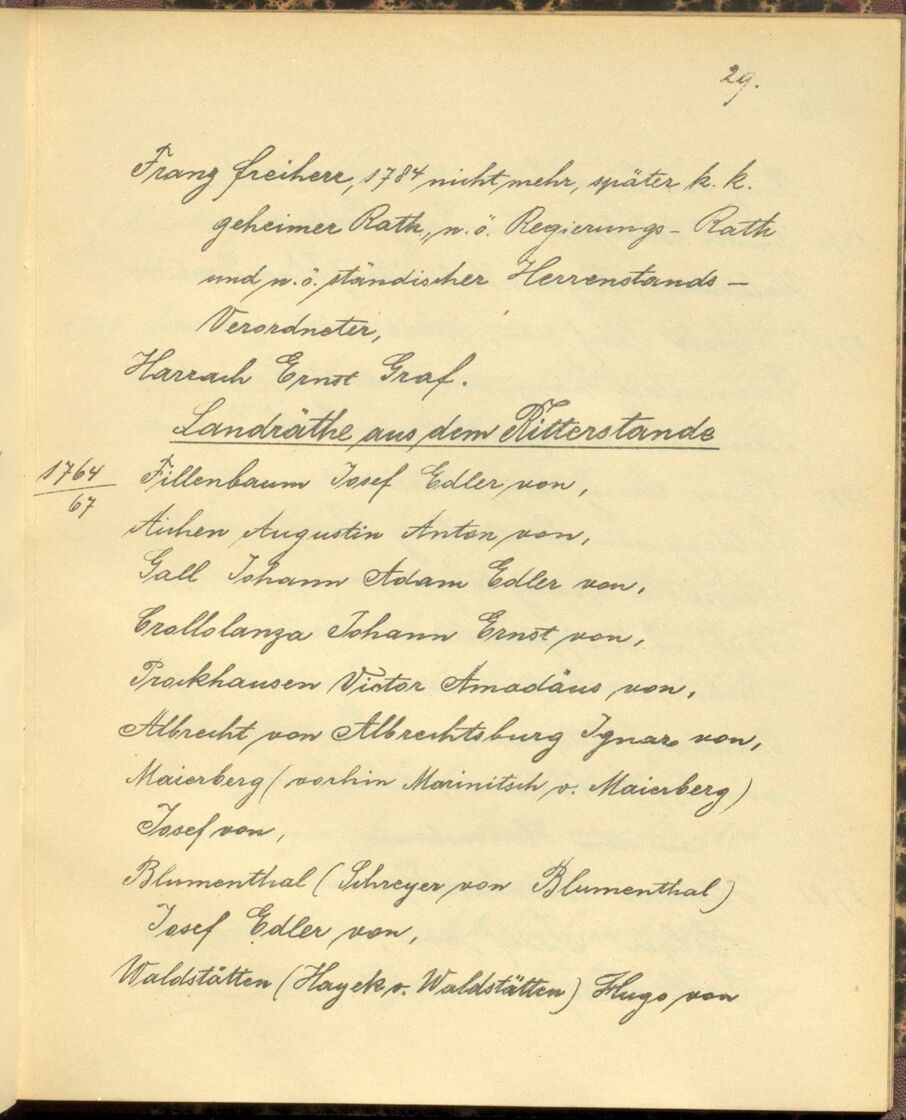 29.
Franz Freiherr, 1784 nicht mehr, später k. k.
geheimer Rath, n. ö. Regierungs- Rath
und n. ö. ständischer Herrenstands-
Verordneter,
Harrach Ernst Graf.
Landräthe aus dem Ritterstande
1764
67
Fillenbaum Josef Edler von,
Aichen Augustin Anton von,
Gall Johann Adam Edler von,
Crollolanza Johann Ernst von,
Prockhausen Victor Amadäus von,
Albrecht von Albrechtsburg Ignaz von,
Maierberg (vorhin Marinitsch v. Maierberg)
Josef von,
Blumenthal (Schreyer von Blumenthal)
Josef Edler von,
Waldstätten (Hayek v. Waldstätten) Hugo von